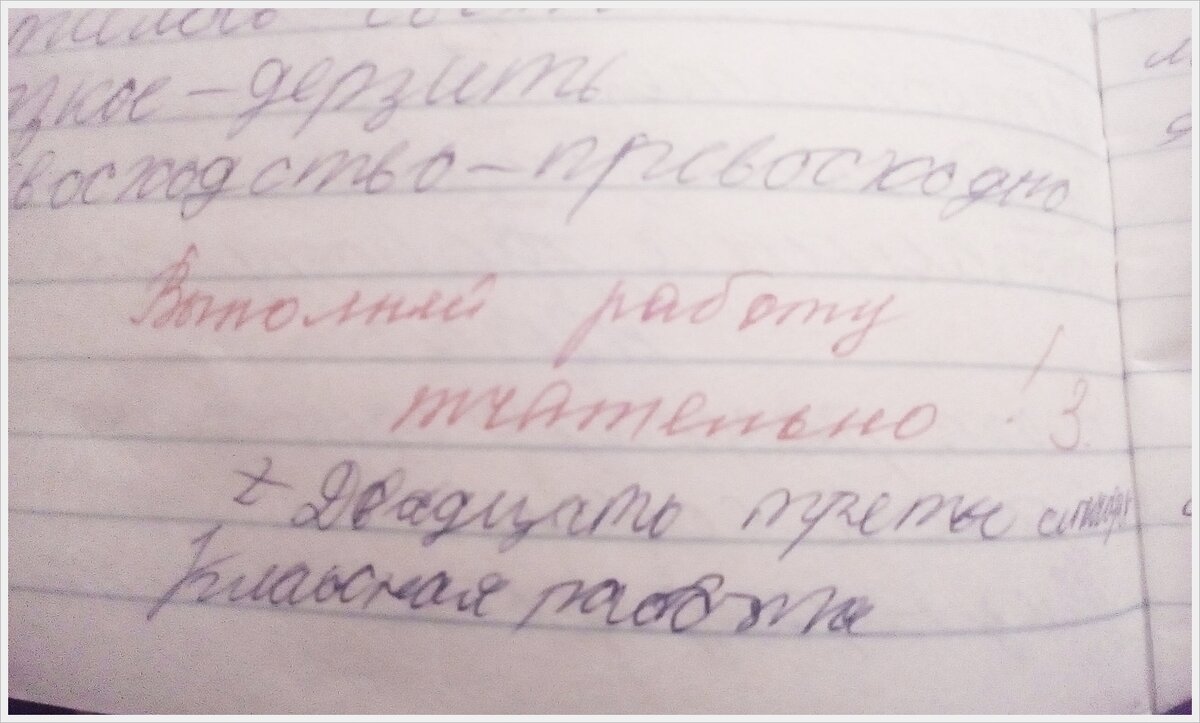 – дерзить
восходство – превосходно
Выполняй работу
тчательно ! 3.
Двадцать третье
Классная работа